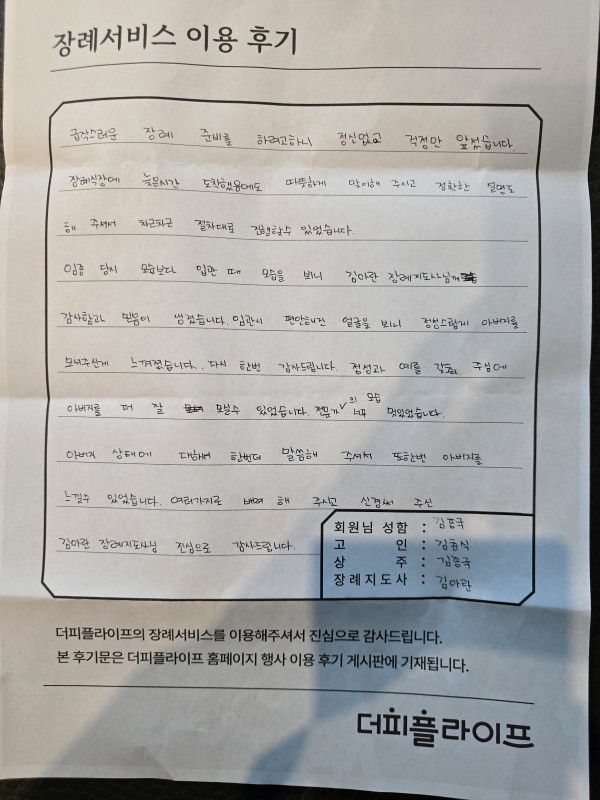 장례서비스 이용 후기
급작스러운 장례 준비를 하려고하니 정신없고 걱정만 앞섰습니다.
장례식장에 늦은시간 도착했음에도 따뜻하게 맞이해 주시고 정확한 설명도
해 주셔서 차근차근 절차대로 진행할수 있었습니다.
임종 당시 모습보다 입관 때 모습을 보니 김아란 장례지도사님께
감사함과 믿음이 생겼습니다. 입관시 편안해진 얼굴을 보니 정성스럽게 아버지를
보셔주신게 느껴졌습니다. 다시 한번 감사드립니다. 정성과 예를 갖춰 주심에
아버지를 더 잘 모실수 있었습니다. 전문가의 모습 멋있었습니다.
아버지 상태에 대해서 한번더 말씀해 주셔서 또한번 아버지를
느낄수 있었습니다. 여러가지로 배려 해 주시고 신경써 주신
김아란 장례지도사님 진심으로 감사드립니다.
회원님 성함 : 김종국
고 인 : 김홍식
상 주 : 김종국
장례지도사 : 김아란
더피플라이프의 장례서비스를 이용해주셔서 진심으로 감사드립니다.
본 후기문은 더피플라이프 홈페이지 행사 이용 후기 게시판에 기재됩니다.
더피플라이프